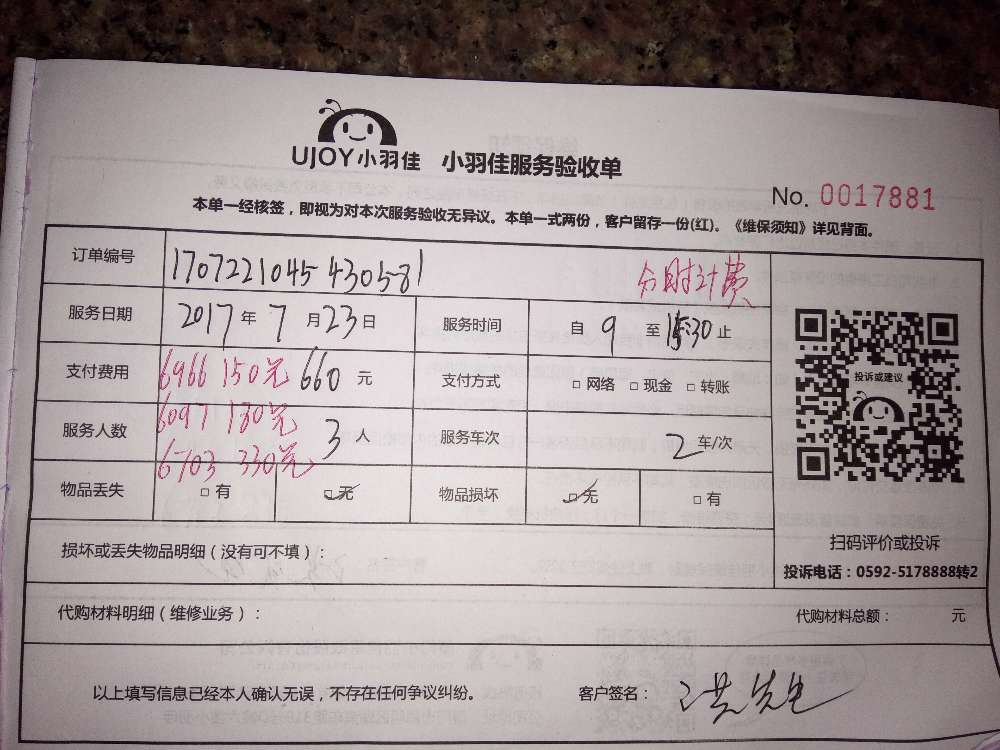 UJOY小羽佳 小羽佳服务验收单
No. 0017881
本单一经核签，即视为对本次服务验收无异议。本单一式两份，客户留存一份(红)。《维保须知》详见背面。
订单编号 170722104543058 1 分时计费
服务日期 2017年7月23日 服务时间 自9至15:30止
支付费用 6966 150元 660元 支付方式 □网络 □现金 □转账
6091 180元
服务人数 3人 服务车次 2车/次
6703 330元
物品丢失 □有 □无 物品损坏 □无 □有
投诉或建议
扫码评价或投诉
投诉电话：0592-5178888转2
损坏或丢失物品明细（没有可不填）：
代购材料明细（维修业务）： 代购材料总额： 元
以上填写信息已经本人确认无误，不存在任何争议纠纷。 客户签名：洪先生